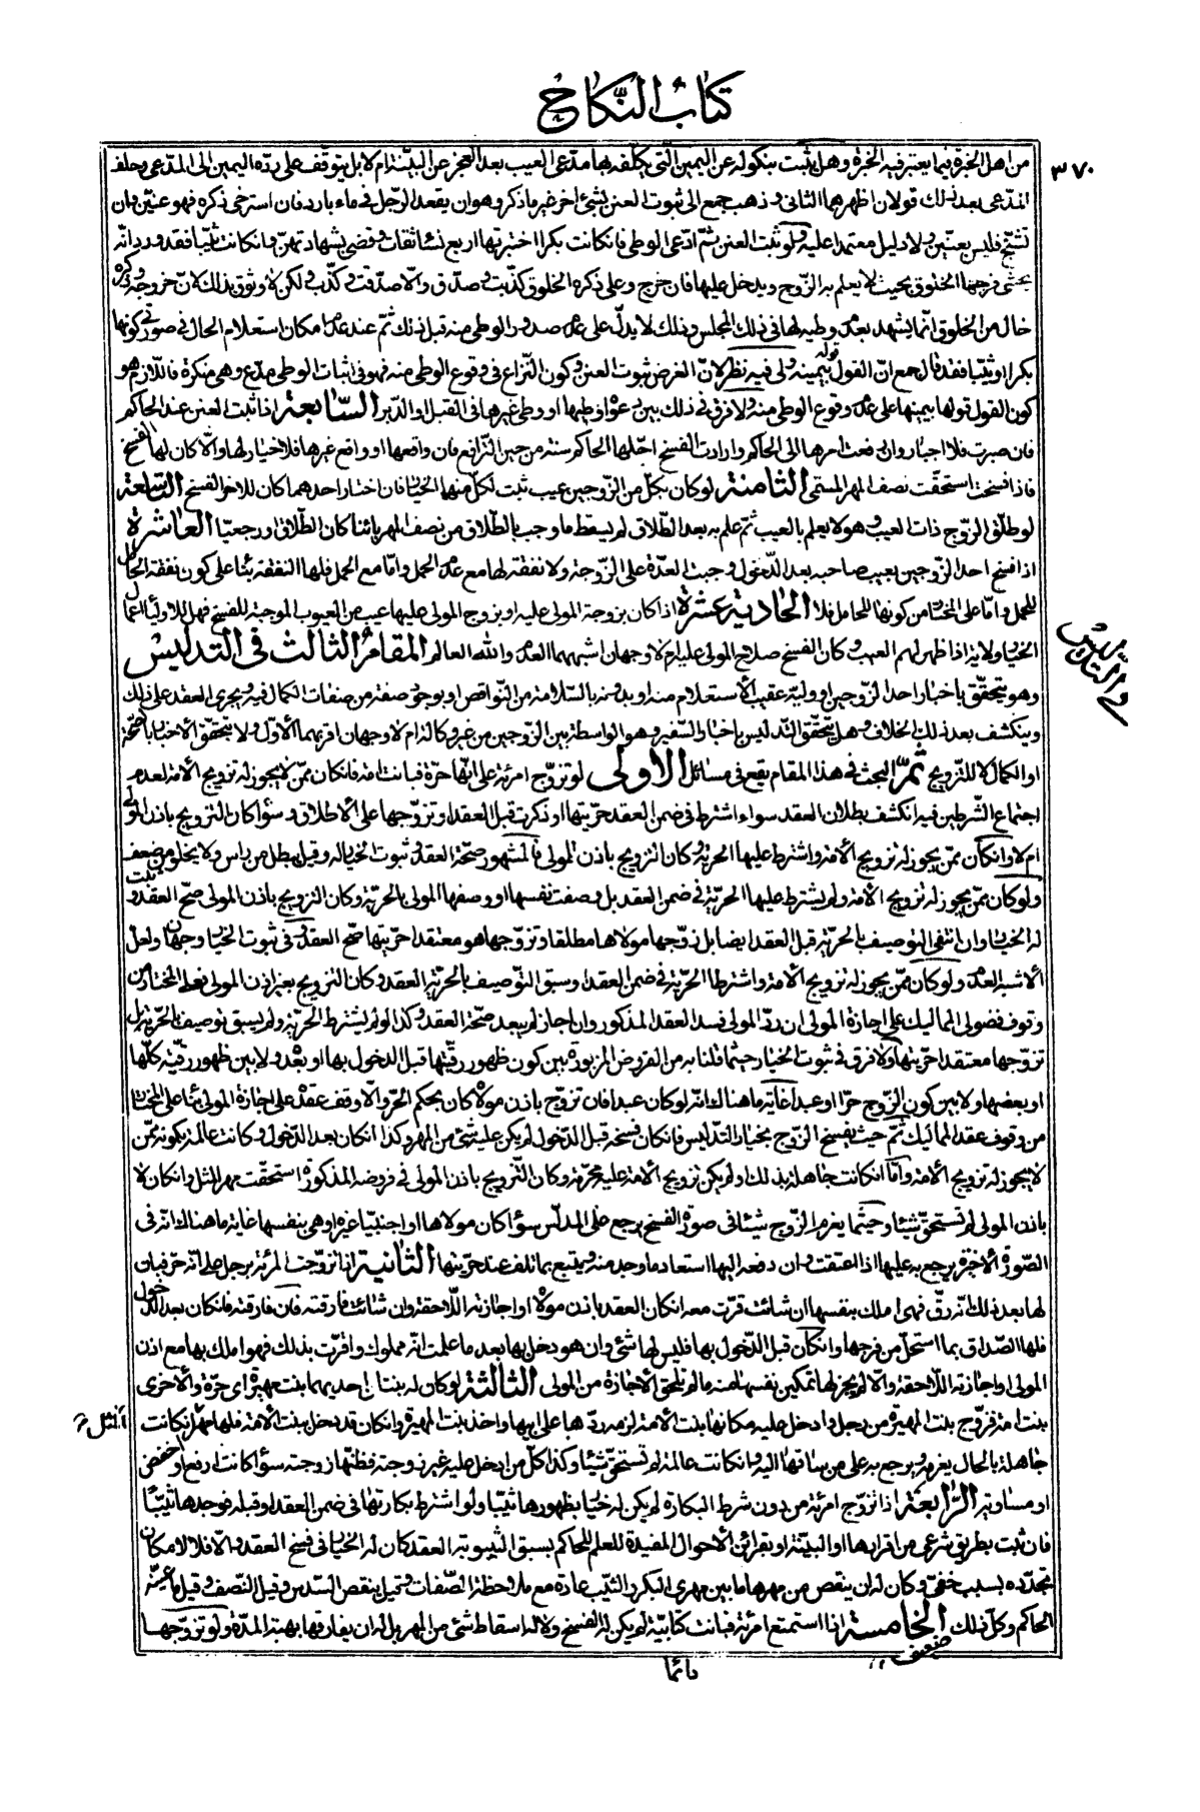 كتاب النكاح
٣٧٠
من اهل الخبرة فيما يعتبر فيه الخبرة وهل يثبت بنكوله عن اليمين التى يكلف بها مدعى العيب بعد العجز عن البينة ام لا بل يتوقف على رده اليمين الى المدعى وحلف
المدعى بعد ذلك قولان اظهرهما الثانى وذهب جمع الى ثبوت العنن بشئ اخر غير ما ذكر وهو ان يقعد الرجل فى ماء بارد فان استرخى ذكره فهو عنين وان
تشنج فليس بعنين ولا دليل معتمدا عليه ولو ثبت العنن ثم ادعى الوطى فان كانت بكرا اختبرتها اربع نساء ثقات وقضى بشهادتهن وان كانت ثيبا فقد ورد انه
يحشى فرجها الخلوق بحيث لا يعلم به الزوج ويدخل عليها فان خرج وعلى ذكره الخلوق كذبت وصدق والا صدقت وكذب لكن لا وثوق بذلك لان خروجه وذكره
خال من الخلوق انما يشهد بعدم وطيه لها فى ذلك المجلس وذلك لا يدل على عدم صدور الوطى منه قبل ذلك ثم عند عدم امكان استعلام الحال فى صورتى كونها
بكرا او ثيبا فقد قال جمع ان القول قوله بيمينه ولى فيه نظر لان الفرض ثبوت العنن وكون النزاع فى وقوع الوطى منه فهو فى اثبات الوطى مدع وهى منكرة فاللازم هو
كون القول قولها بيمينها على عدم وقوع الوطى منه ولا فرق فى ذلك بين دعواه وطيها او وطى غيرها فى القبل او الدبر السابعة اذا ثبت العنن عند الحاكم
فان صبرت فلا اجبار وان رفعت امرها الى الحاكم وارادت الفسخ اجلها الحاكم سنة من حين الترافع فان واقعها او واقع غيرها فلا خيار لها والا كان لها الفسخ
فاذا فسخت استحقت نصف المهر المسمى الثامنة لو كان بكل من الزوجين عيب ثبت لكل منهما الخيار فان اختار احدهما كان للاخر الفسخ التاسعة
لو طلق الزوج ذات العيب وهو لا يعلم بالعيب ثم علم به بعد الطلاق لم يسقط ما وجب بالطلاق من نصف المهر بائنا كان الطلاق او رجعيا العاشرة
اذا فسخ احد الزوجين بعيب صاحبه بعد الدخول وجبت العدة على الزوجة ولا نفقة لها مع عدم الحمل واما مع الحمل فلها النفقة بناء على كون نفقة الحامل
للحمل واما على المختار من كونها للحامل فلا الحادية عشرة اذا كان بزوجة المولى عليه او بزوج المولى عليها عيب من العيوب الموجبة للفسخ فهل للاولياء اعمال
الخيار ولاية اذا ظهر لهم العيب وكان الفسخ صلاح المولى عليه ام لا وجهان اشبههما العدم والله العالم المقام الثالث فى التدليس
وهو يتحقق باخبار احد الزوجين او وليه عقيب الاستعلام منه او بدونه بالسلامة من النواقص او بوجود صفة من صفات الكمال فيه ويجرى العقد على ذلك
وينكشف بعد ذلك الخلاف وهل يتحقق التدليس باخبار السفير وهو الواسطة بين الزوجين من غير وكالة ام لا وجهان اقربهما الاول ولا يتحقق الاخبار بالصحة
او الكمال لا للتزويج ثم البحث فى هذا المقام يقع فى مسائل الاولى لو تزوج امرئة على انها حرة فبانت امة فان كان ممن لا يجوز له تزويج الامة لعدم
اجتماع الشرطين فيه انكشف بطلان العقد سواء اشترط فى ضمن العقد حريتها او ذكرت قبل العقد او تزوجها على الاطلاق وسواء كان التزويج باذن المولى
ام لا وان كان ممن يجوز له تزويج الامة واشترط عليها الحرية وكان التزويج باذن المولى فالمشهور صحة العقد وثبوت الخيار له وقيل يبطل من راس ولا يخلو من ضعف
ولو كان ممن يجوز له تزويج الامة ولم يشترط عليها الحرية فى ضمن العقد بل وصفت نفسها او وصفها المولى بالحرية وكان التزويج باذن المولى صح العقد وثبت
له الخيار وان انتفى التوصيف بالحرية قبل العقد ايضا بل زوجها مولاها مطلقا وتزوجها هو معتقدا حريتها صح العقد وفى ثبوت الخيار وجهان ولعل
الاشبه العدم ولو كان ممن يجوز له تزويج الامة واشترطا الحرية فى ضمن العقد او سبق التوصيف بالحرية العقد وكان التزويج بغير اذن المولى فعلى المختار من
وقوف فضولى المماليك على اجازة المولى ان رد المولى فسد العقد المذكور وان اجاز لم يبعد صحة العقد وكذا لو لم يشترط الحرية ولم يسبق توصيف بالحرية بل
تزوجها معتقدا حريتها ولا فرق فى ثبوت الخيار حيثما قلنا به من الفروض المزبورة بين كون ظهور رقيتها قبل الدخول بها او بعده ولا بين ظهور رقية كلها
او بعضها ولا بين كون الزوج حرا او عبدا غاية ما هناك انه لو كان عبدا فان تزوج باذن مولاه كان بحكم الحر والا وقف عقده على اجازة المولى بناء على المختار
من وقوف عقد المماليك ثم حيث يفسخ الزوج بخيار التدليس فان كان فسخه قبل الدخول لم يكن عليه شئ من المهر وكذا ان كان بعد الدخول وكانت عالمة بكونه ممن
لا يجوز له تزويج الامة واما ان كانت جاهلة بذلك او لم يكن تزويج الامة عليه محرمة وكان التزويج باذن المولى فى فروضه المذكورة استحقت مهر المثل وان كان لا
باذن المولى لم تستحق شيئا وحيثما يغرم الزوج شيئا فى صورة الفسخ يرجع على المدلس سواء كان مولاها او اجنبيا غيره او هى بنفسها غاية ما هناك انه فى
الصورة الاخيرة يرجع به عليها اذا اعتقت وان دفعه اليها استعاد ما وجد منه ويتبع بما تلف عند حريتها الثانية اذا تزوجت المرئة برجل على انه حر فبان
لها بعد ذلك انه رق فهى املك بنفسها ان شائت قرت معه ان كان العقد باذن مولاه او اجازته اللاحقة وان شائت فارقته فان فارقته فان كان بعد الدخول
فلها الصداق بما استحل من فرجها وان كان قبل الدخول بها فليس لها شئ وان هو دخل بها بعد ما علمت انه مملوك واقرت بذلك فهو املك بها مع اذن
المولى او اجازته اللاحقة والا لم يجز لها تمكين نفسها منه ما لم تلحق الاجازة من المولى الثالثة لو كان له بنتان احديهما بنت مهيرة اى حرة والاخرى
بنت امة فزوج بنت المهيرة من رجل وادخل عليه مكانها بنت الامة لزمه ردها على ابيها واخذ بنت المهيرة وان كان قد دخل ببنت الامة فلها مهر ان كانت
جاهلة بالحال يغرمه ويرجع به على من ساقها اليه وان كانت عالمة لم تستحق شيئا وكذا كل من ادخل عليه غير زوجته فظنها زوجته سواء كانت ارفع او اخفض
او مساوية الرابعة اذا تزوج امرئة من دون شرط البكارة لم يكن له خيار بظهورها ثيبا ولو اشترط بكارتها فى ضمن العقد او قبله فوجدها ثيبا
فان ثبت بطريق شرعى من اقرارها او البينة او بقرائن الاحوال المفيدة للعلم للحاكم بسبق الثيبوبة العقد كان له الخيار فى فسخ العقد والا فلا لامكان
تجدده بسبب خفى وكان له ان ينقص من مهرها ما بين مهرى البكر والثيب عادة مع ملاحظة الصفات وقيل ينقص السدس وقيل النصف وقيل ما يعينه
الحاكم وكل ذلك ضعيف الخامسة اذا استمتع امرئة فبانت كتابية لم يكن له الفسخ ولا له اسقاط شئ من المهر بل له ان يفارقها بهبة المدة ولو تزوجها
دائما
فى التدليس
المثل